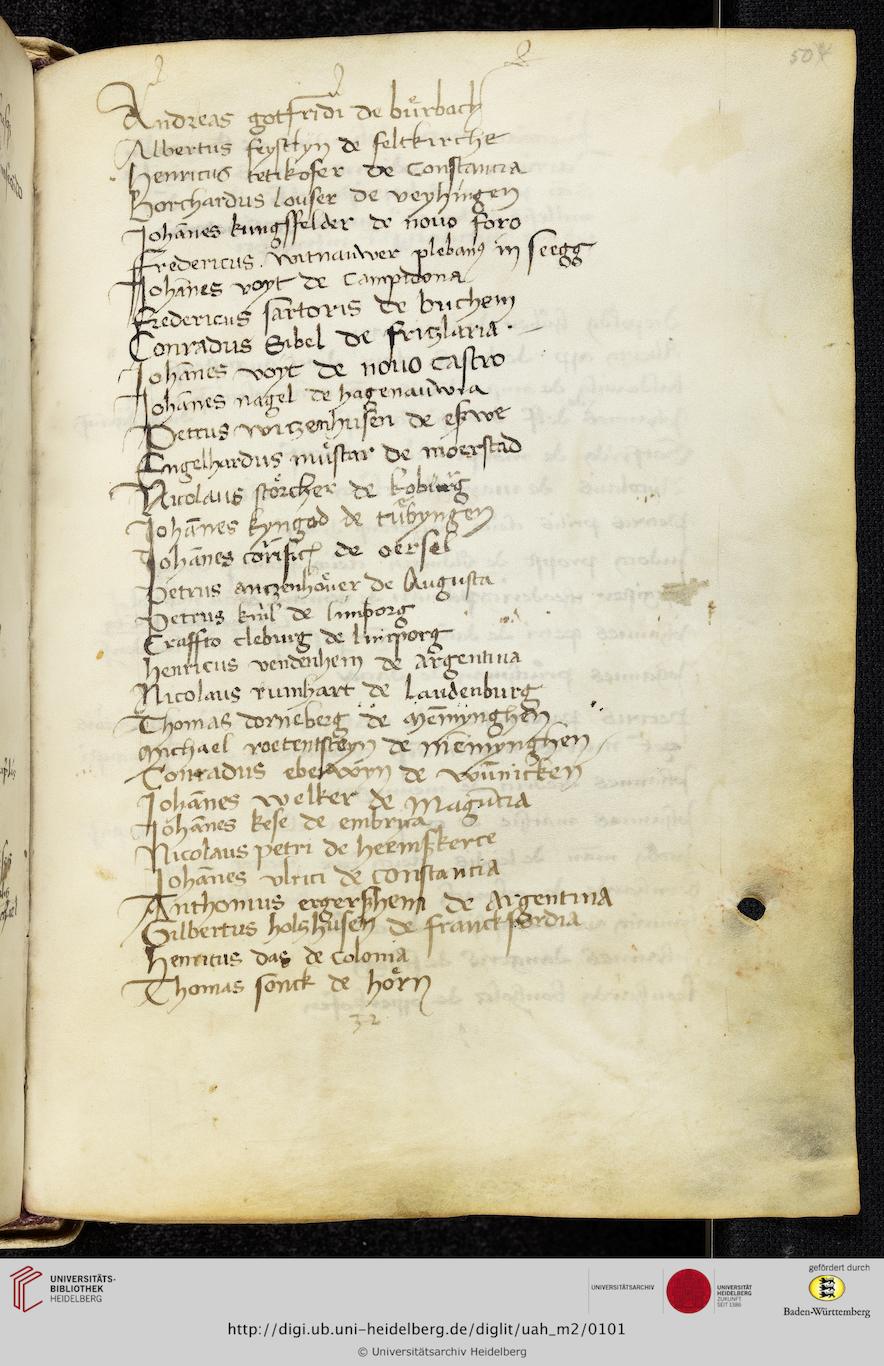 504
Andreas gotfridi de bůrbach
Albertus feystlyn de feltkirche
Henricus tetikofer de Constancia
Borchardus louser de veyhingen
Johānes kungsfelder de novo foro
Fredericus witnauwer plebanꝰ in seegg
Johānes voyt de Campidona
Fredericus sartoris de buchem
Conradus Sibel de fritzlaria
Johānes voyt de novo castro
Johānes nagel de hagenauwia
Petrus witzenhusen de eswe
Engelhardus můstar de moerstad
Nicolaus storcher de koburg
Johānes kyngod de tůbyngen
Johānes de oersel
Petrus antzenhouer de Augusta
Petrus de limporg
Craffto cleburg de limporg
Henricus vendenhem de argentina
Nicolaus rumhart de laudenburg
Thomas dorneberg de memynghen
Michael roetensteyn de memynghen
Conradus de
Johānes welker de magūcia
Johānes kese de embrica
Nicolaus petri de heemskerce
Johānes ulrici de constancia
Anthonius ergershem de Argentina
Gilbertus holshusen de franckfordia
Henricus das de Colonia
Thomas sonck de hoern
32
UNIVERSITÄTS-
BIBLIOTHEK
HEIDELBERG
UNIVERSITÄTSARCHIV
UNIVERSITÄT
HEIDELBERG
ZUKUNFT
SEIT 1386
gefördert durch
Baden-Württemberg
http://digi.ub.uni-heidelberg.de/diglit/uah_m2/0101
© Universitätsarchiv Heidelberg